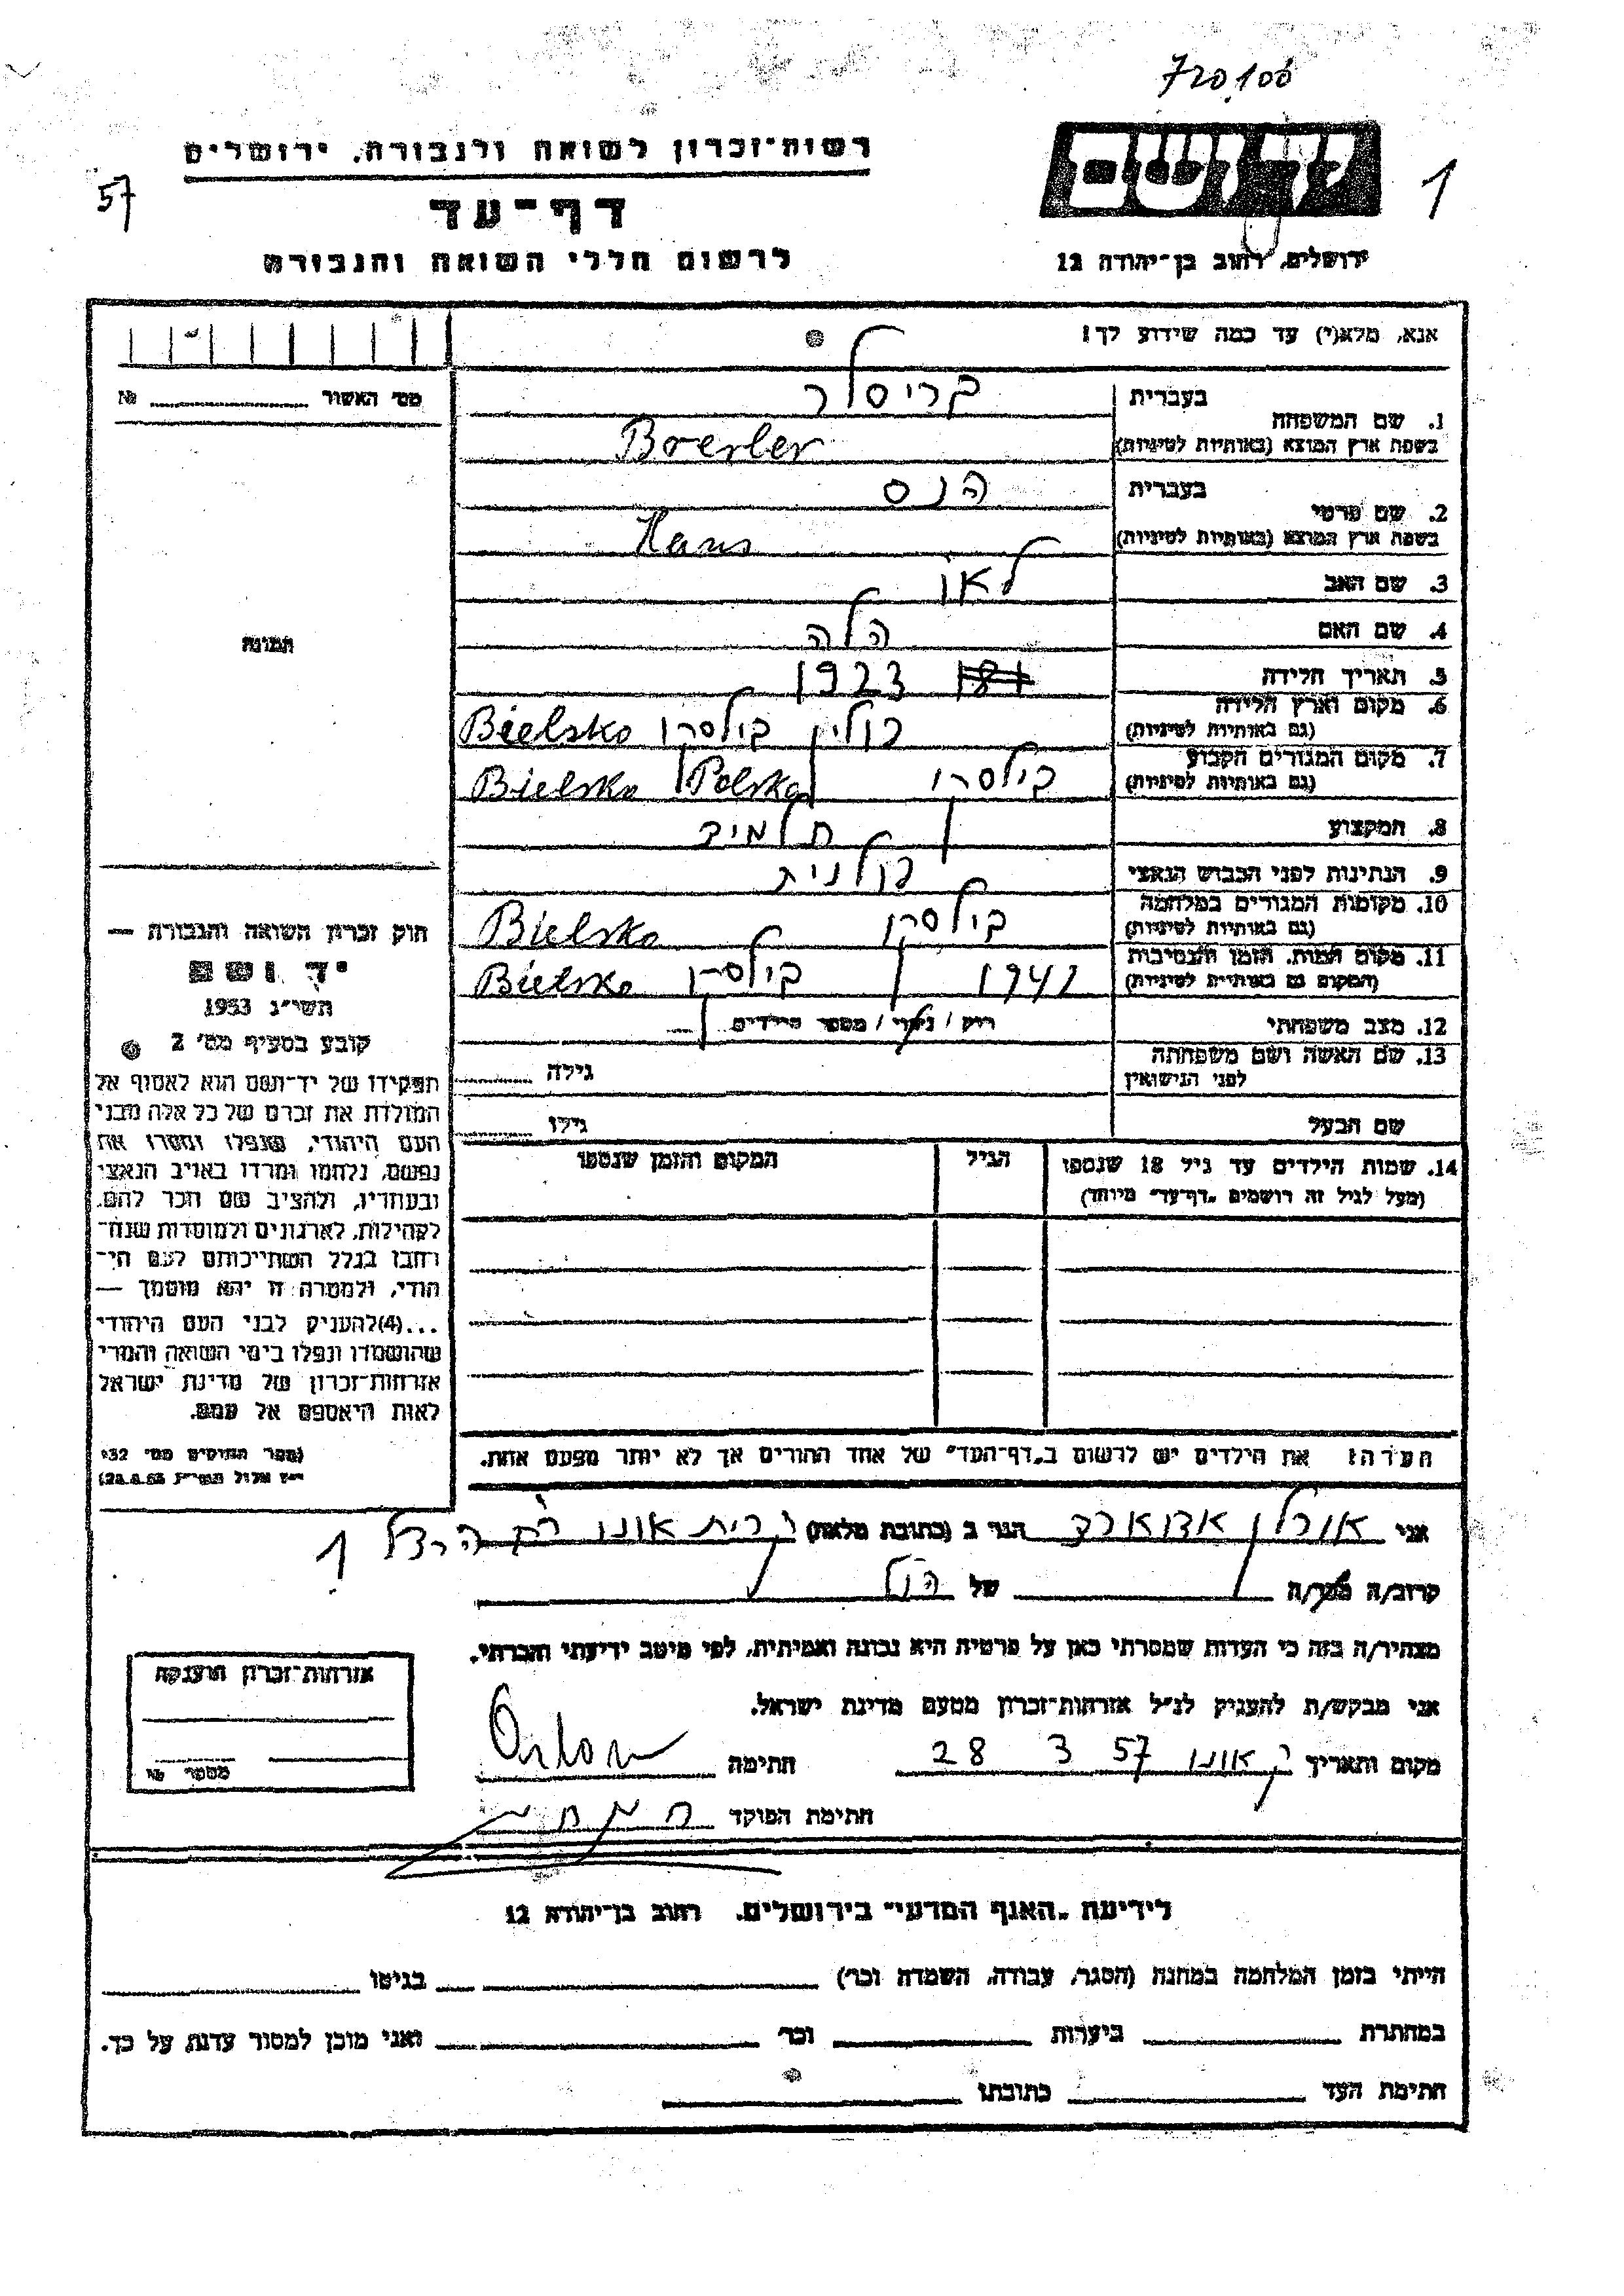 720,106
רשות־זכרון לשואה ולגבורה, ירושלים
יד ושם
1
57
דף־עד
לרשום חללי השואה והגבורה
ירושלים, רחוב בן־יהודה 12
אנא, מלא(י) עד כמה שידוע לך!
מס׳ האשור № ........
1. שם המשפחה
בעברית בריסלר
בשפת ארץ המוצא (באותיות לטיניות) Boerler
2. שם פרטי
בעברית הנס
בשפת ארץ המוצא (באותיות לטיניות) Hans
3. שם האב לאון
4. שם האם הלה
5. תאריך הלידה 1923
6. מקום וארץ הלידה (גם באותיות לטיניות) פולין בילסקו Bielsko
7. מקום המגורים הקבוע (גם באותיות לטיניות) בילסקו Bielsko Polska
8. המקצוע תלמיד
9. הנתינות לפני הכבוש הנאצי פולנית
10. מקומות המגורים במלחמה (גם באותיות לטיניות) בילסקו Bielsko
11. מקום המות, הזמן והנסיבות (המקום גם באותיות לטיניות) 1941 בילסקו Bielsko
12. מצב משפחתי רווק / נשוי / מספר הילדים
13. שם האשה ושם משפחתה לפני הנישואין גילה
שם הבעל גילו
14. שמות הילדים עד גיל 18 שנספו
(מעל לגיל זה רושמים „דף־עד״ מיוחד)
הגיל
המקום והזמן שנספו
הערה: את הילדים יש לרשום ב„דף־העד״ של אחד ההורים אך לא יותר מפעם אחת.
תמונה
חוק זכרון השואה והגבורה —
יד ושם
תשי״ג 1953
קובע בסעיף מס׳ 2
תפקידו של יד־ושם הוא לאסוף אל
המולדת את זכרם של כל אלה מבני
העם היהודי, שנפלו ומסרו את
נפשם, נלחמו ומרדו באויב הנאצי
ובעוזריו, ולהציב שם וזכר להם,
לקהילות, לארגונים ולמוסדות שנח־
רבו בגלל השתייכותם לעם הי־
הודי, ולמטרה זו יהא מוסמך —
...(4)להעניק לבני העם היהודי
שהושמדו ונפלו בימי השואה והמרי
אזרחות־זכרון של מדינת ישראל
לאות היאספם אל עמם.
(ספר החוקים מס׳ 132
י״ז אלול תשי״ג 28.8.53)
אני אורלן אדוארד הגר ב (כתובת מלאה) קרית אונו רח הרצל 1
קרוב/ה מכר/ה של הנ״ל
מצהיר/ה בזה כי העדות שמסרתי כאן על פרטיה היא נכונה ואמיתית, לפי מיטב ידיעתי והכרתי.
אני מבקש/ת להעניק לנ״ל אזרחות־זכרון מטעם מדינת ישראל.
מקום ותאריך ק אונו 28 3 57 חתימה Orlon
חתימת הפוקד
אזרחות־זכרון הוענקה
מספר №
לידיעת „האגף המדעי״ בירושלים, רחוב בן־יהודה 12
הייתי בזמן המלחמה במחנה (הסגר, עבודה, השמדה וכו׳) בגיטו
במחתרת ביערות וכו׳ ואני מוכן למסור עדות על כך.
חתימת העד כתובתו